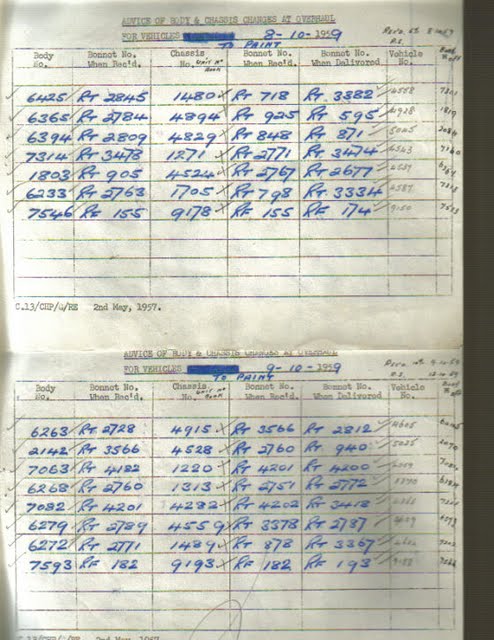 ADVICE OF BODY & CHASSIS CHANGES AT OVERHAUL
FOR VEHICLES 8-10-1959
TO PAINT
Body No. Bonnet No. When Rec'd. Chassis No. Unit No Book Bonnet No. When Rec'd. Bonnet No. When Delivered Vehicle No.
6425 RT 2845 1480 RT 718 RT 3382 4558
6365 RT 2784 4894 RT 925 RT 595
6394 RT 2809 4829 RT 848 RT 871
7314 RT 3478 1271 RT 2771 RT 3474
1803 RT 905 4524 RT 2767 RT 2677
6233 RT 2763 1705 RT 798 RT 3334
7546 RF 155 9178 RF 155 RF 174 9150
C.13/CHP/4/RE 2nd May, 1957.
ADVICE OF BODY & CHASSIS CHANGES AT OVERHAUL
FOR VEHICLES 9-10-1959
TO PAINT
Body No. Bonnet No. When Rec'd. Chassis No. Unit No Book Bonnet No. When Rec'd. Bonnet No. When Delivered Vehicle No.
6263 RT 2728 4915 RT 3566 RT 2812 4605
2142 RT 3566 4528 RT 2760 RT 940 5025
7063 RT 4182 1220 RT 4201 RT 4200
6268 RT 2760 1313 RT 2751 RT 2772
7082 RT 4201 4282 RT 4202 RT 3418
6279 RT 2789 4559 RT 3378 RT 2787
6272 RT 2771 1489 RT 878 RT 3367
7593 RF 182 9193 RF 182 RF 193
2nd May, 1957.